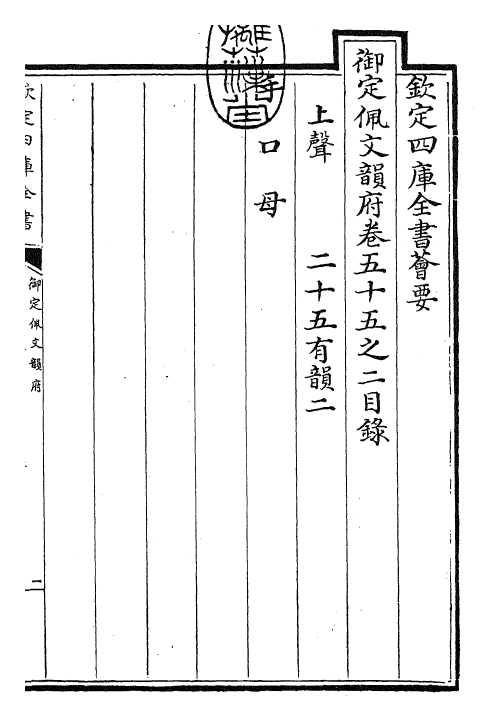 欽定四庫全書薈要
御定佩文韻府卷五十五之二目錄
上聲 二十五有韻二
口 母
欽定四庫全書
御定佩文韻府